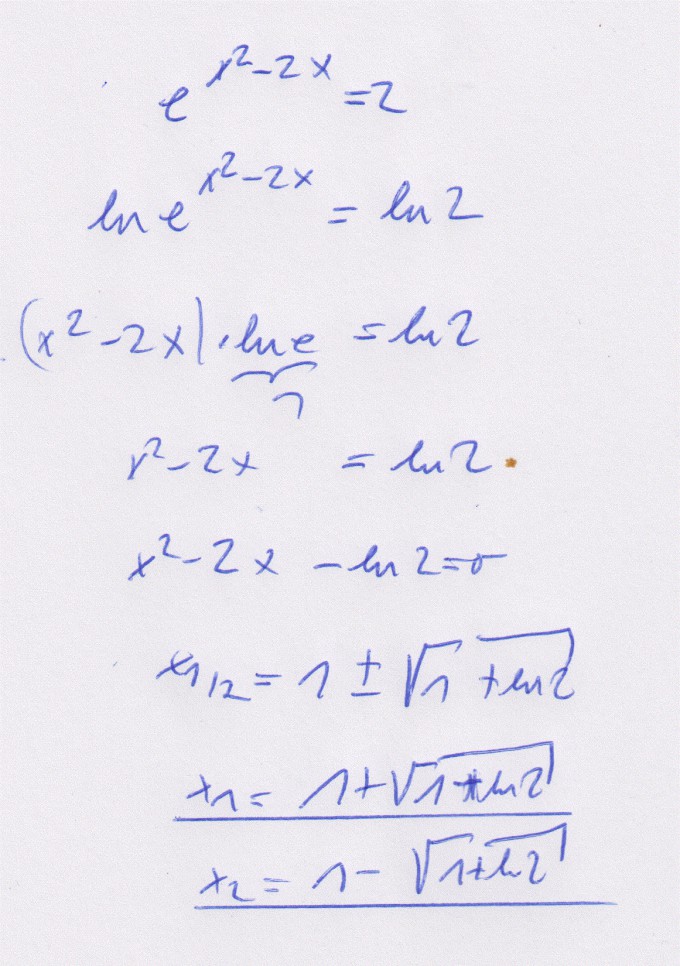 e^(x²-2x) = 2
ln e^(x²-2x) = ln 2
(x²-2x) · ln e = ln 2
1
x²-2x = ln 2
x²-2x - ln 2 = 0
x1/2 = 1 ± √(1 + ln 2)
x1 = 1 + √(1 + ln 2)
x2 = 1 - √(1 + ln 2)